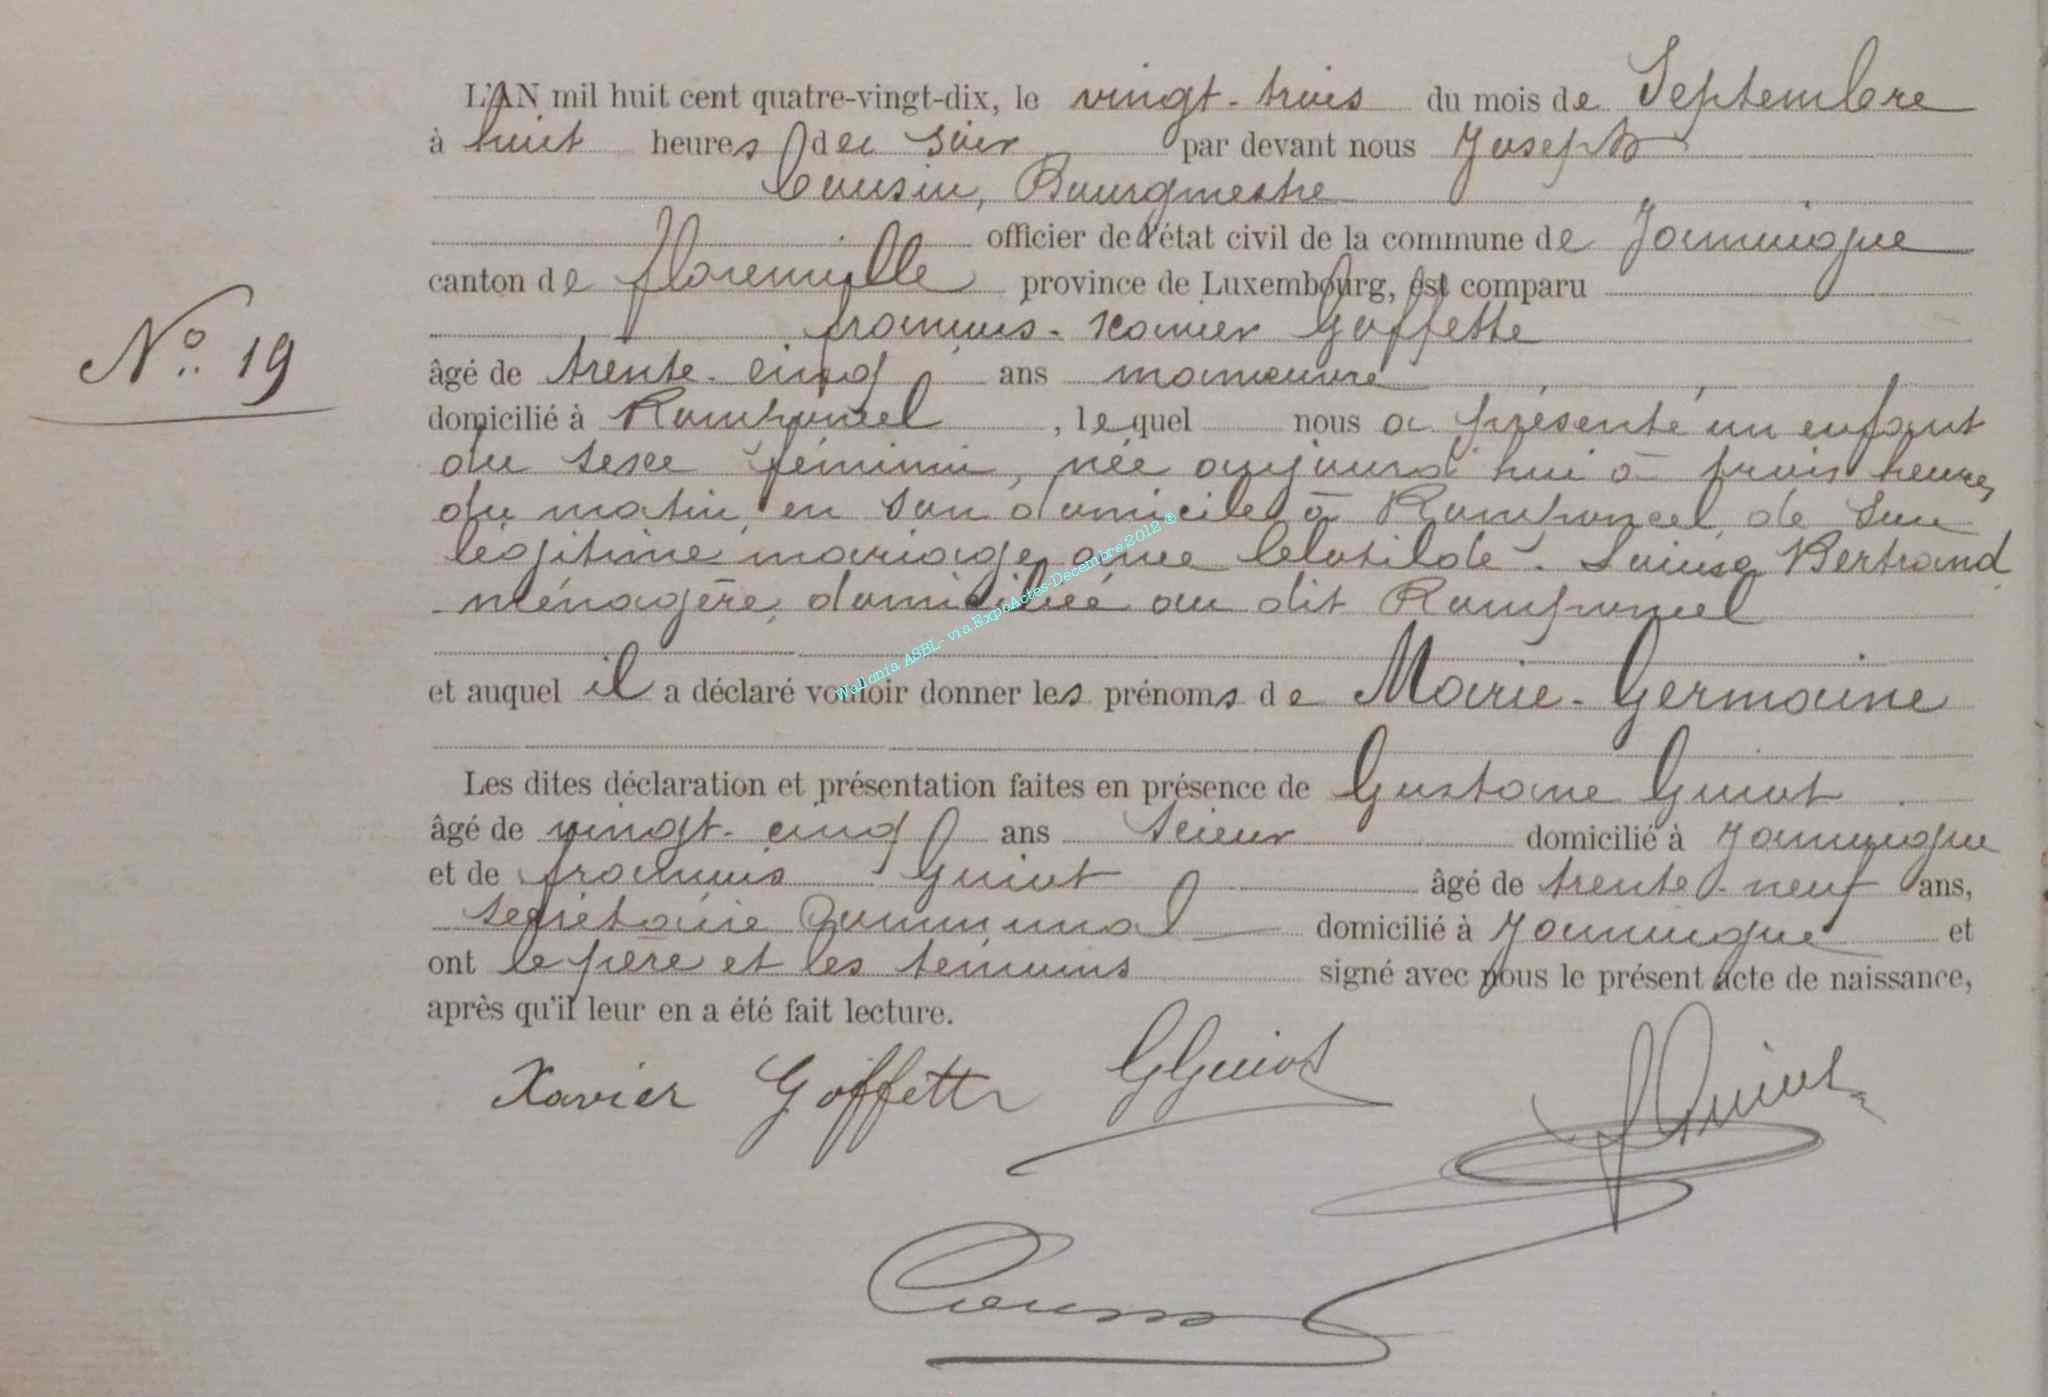 L'AN mil huit cent quatre-vingt-dix, le vingt-trois du mois de Septembre
à huit heures du soir par devant nous Joseph
Cousin, Bourgmestre
officier de l'état civil de la commune de Jamoigne
canton de florenville province de Luxembourg, est comparu
françois-Xavier Goffette
N° 19
âgé de trente-cinq ans manœuvre
domicilié à Romponcel, lequel nous a présenté un enfant
du sexe féminin, née aujourd'hui à trois heures
du matin, en son domicile à Romponcel de son
légitime mariage avec Clotilde-Louise Bertrand
ménagère, domiciliée au dit Romponcel
et auquel il a déclaré vouloir donner les prénoms de Marie-Germaine
Les dites déclaration et présentation faites en présence de Gustave Guiot
âgé de vingt-cinq ans scieur domicilié à Jamoigne
et de françois Guiot âgé de trente-neuf ans,
secrétaire Communal domicilié à Jamoigne et
ont le père et les témoins signé avec nous le présent acte de naissance,
après qu'il leur en a été fait lecture.
Xavier Goffette GGuiot fGuiot
Cousin
Wallonia ASBL- via ExpoActes-Decembre 2012 ©